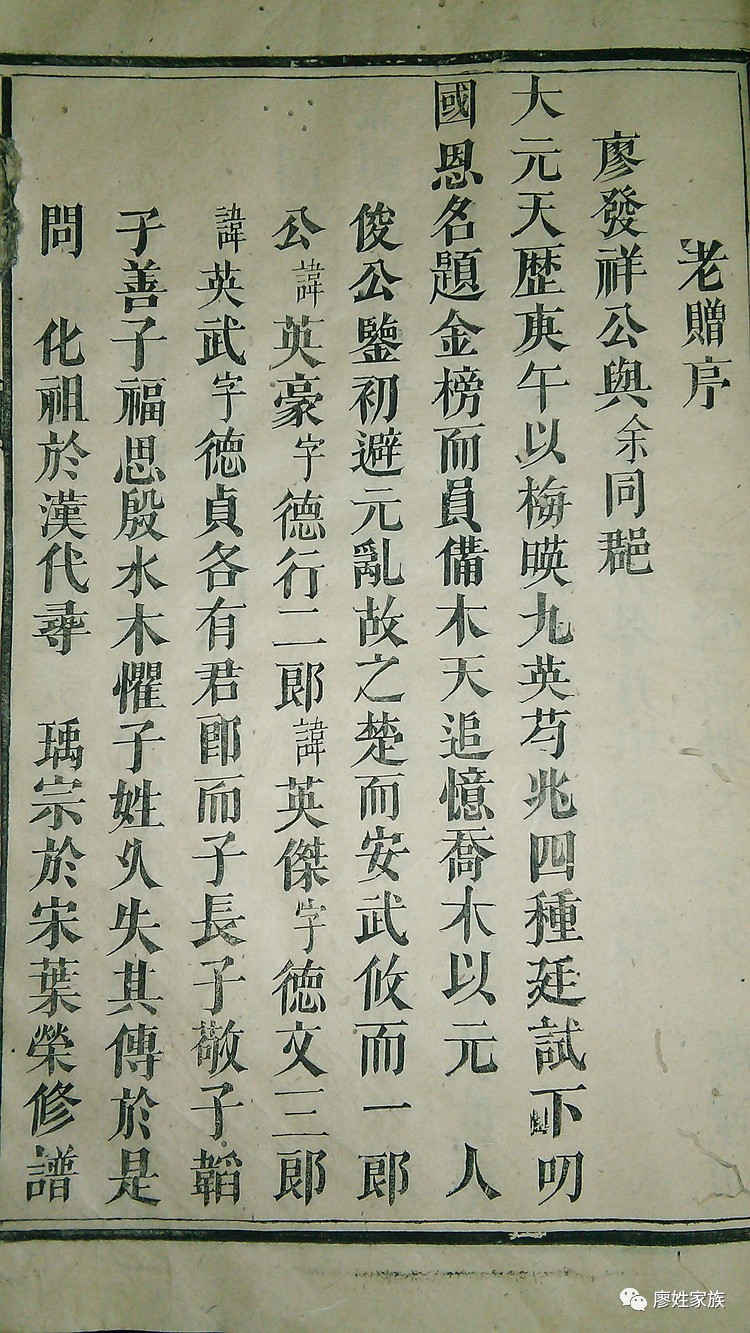 老贈序
廖發祥公與余同郡
大元天歷庚午以梅暎九英芍兆四種廷試下叨
國恩名題金榜而員備木天追憶喬木以元 人
俊公鑒初避元亂故之楚而安武攸而一郎
公諱英豪字德行二郎諱英傑字德文三郎
諱英武字德貞各有君郎而子長子敬子韜
子善子福思殷水木懼子姓久失其傳於是
問 化祖於漢代尋 瑀宗於宋葉榮修譜
廖姓家族